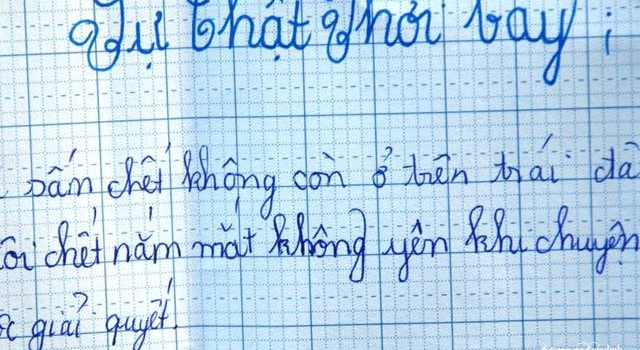 Sự thật Phơi bay:
bấm chết không còn ở trên trái đấ
ôi chết nằm mắt không yên khi chuyện
ợc giải quyết.